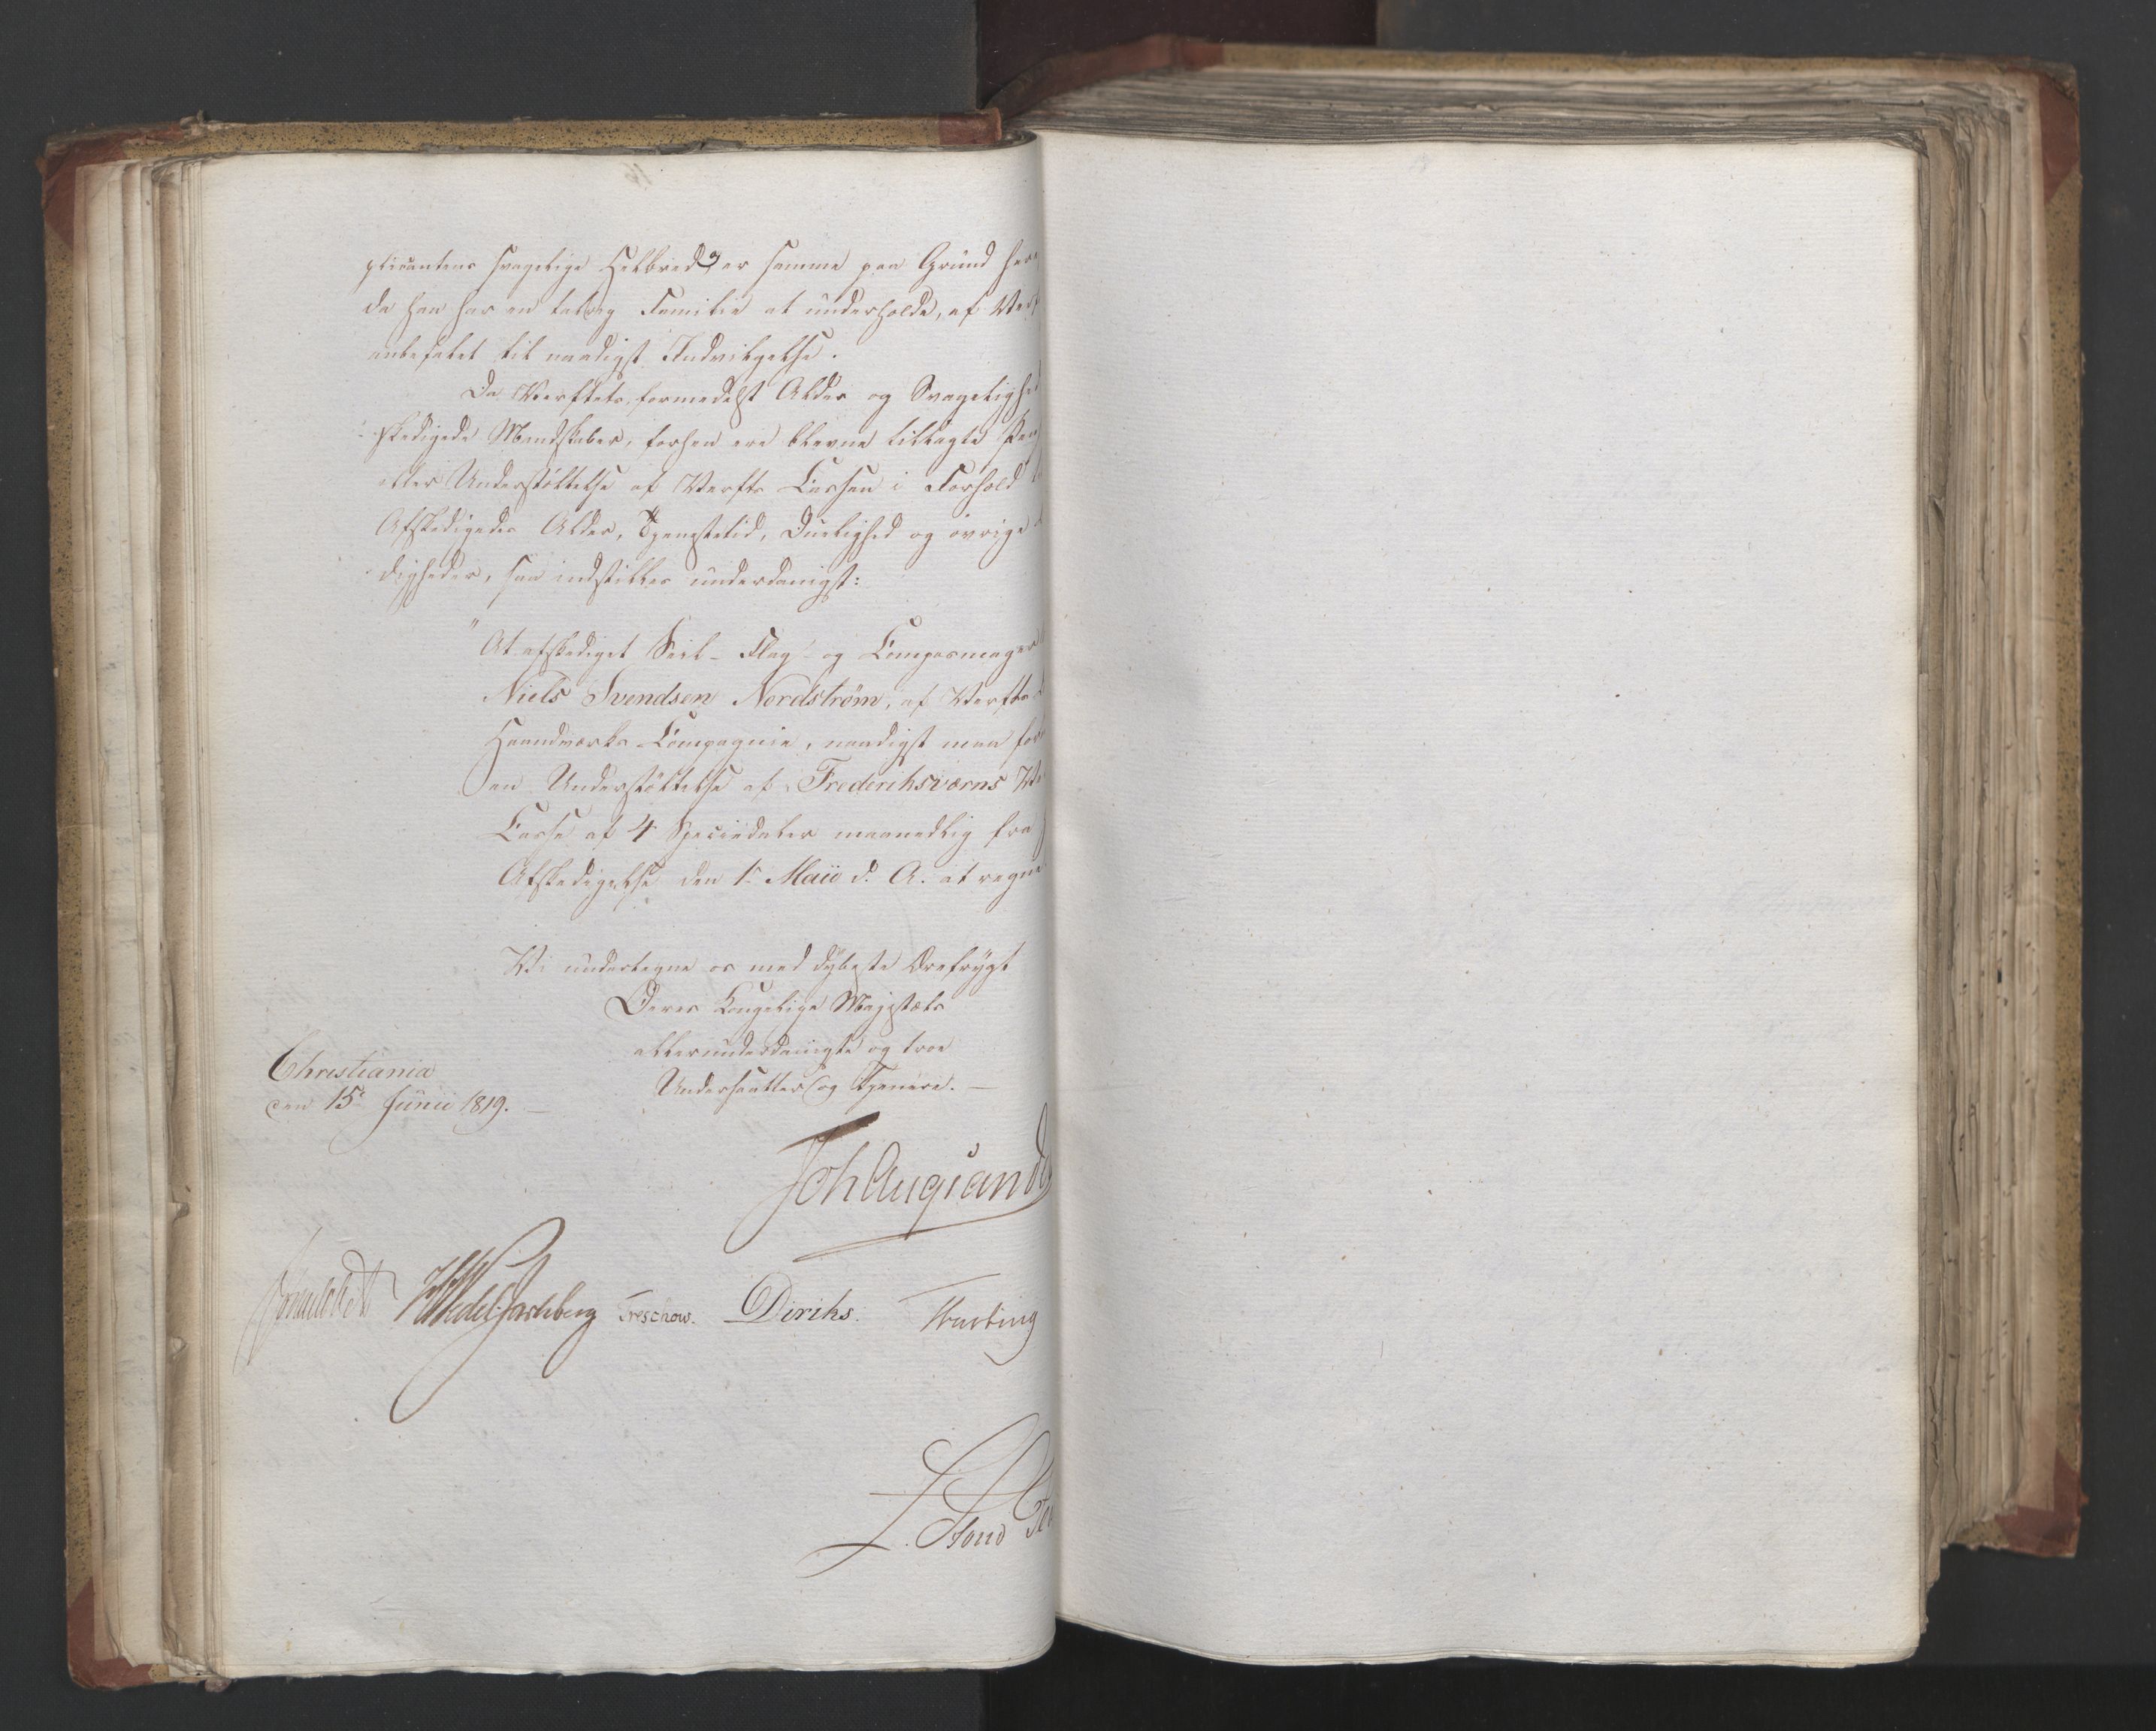 plicantens svagelige Helbred er samme paa Grund her
da han har en talrig Familie at underholde, af Ver
anbefalet til naadigst Indvilgelse.
Da Værftets, formedelst Alder og Svagelighed
skedigede Mandskaber, forhen ere blevne tillagte Pen
eller Understöttelse af Verfts Cassen i Forhold
Afskedigedes Alder, Tjenestetid, Duelighed og øvrige
digheder, saa indstilles underdanigst:
"At afskediget Seil- Flag- og Compasmager
Niels Svendsen Nordstrøm, af Verftets
Haandværks-Compagnie, naadigst maa for
en Understöttelse af Frederiksværns
Casse af 4 Speciedaler maanedlig fra
Afskedigelse den 1ste Maii d. A. at regne
Vi undertegne os med dybeste Ærefrygt
Deres Kongelige Majestæts
allerunderdanigste og troe
Undersaatter og Tjenere. —
Christiania
den 15de Junii 1819. —
Joh Aug Sande
Sommerhielm HWedel Jarlsberg Treschow. Diriks. Fasting
L.